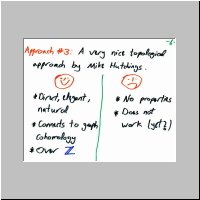 Approach #3: A very nice topological
approach by Mike Hutchings.
* Direct, elegant,
natural
* Connects to graph
cohomology
* Over Z
* No properties
* Does not
work (yet?)